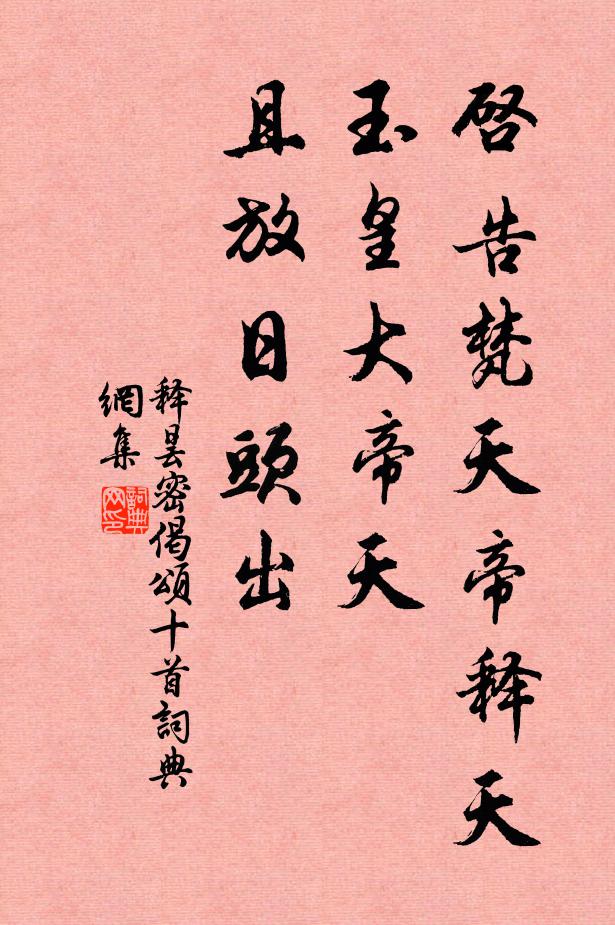 啓告梵天帝释天
玉皇大帝天
且放日頭出
释昙密偈頌十首詞典
網集
詞典
网印